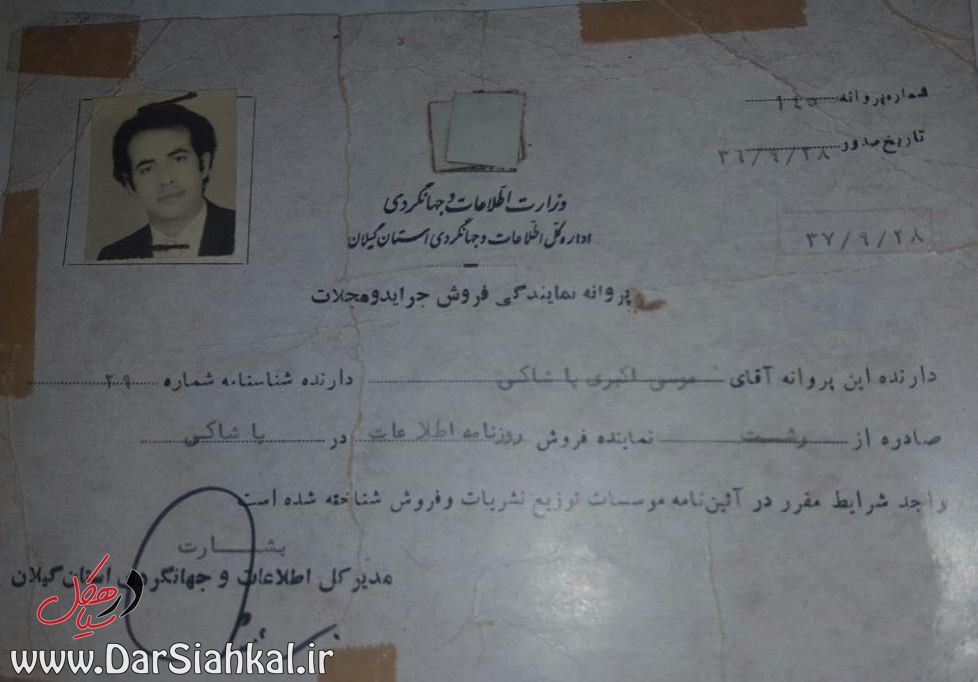 شماره پروانه ۱۴۵
تاریخ صدور ۳۶/۹/۲۸
۳۷/۹/۲۸
وزارت اطلاعات و جهانگردی
اداره کل اطلاعات و جهانگردی استان گیلان
پروانه نمایندگی فروش جراید و مجلات
دارنده این پروانه آقای موسی اکبری پاشاکی دارنده شناسنامه شماره ۲۹
صادره از رشت نماینده فروش روزنامه اطلاعات در پاشاکی
واجد شرایط مقرر در آئین‌نامه موسسات توزیع نشریات و فروش شناخته شده است
بشارت
مدیر کل اطلاعات و جهانگردی استان گیلان
در سیاهکل
www.DarSiahkal.ir